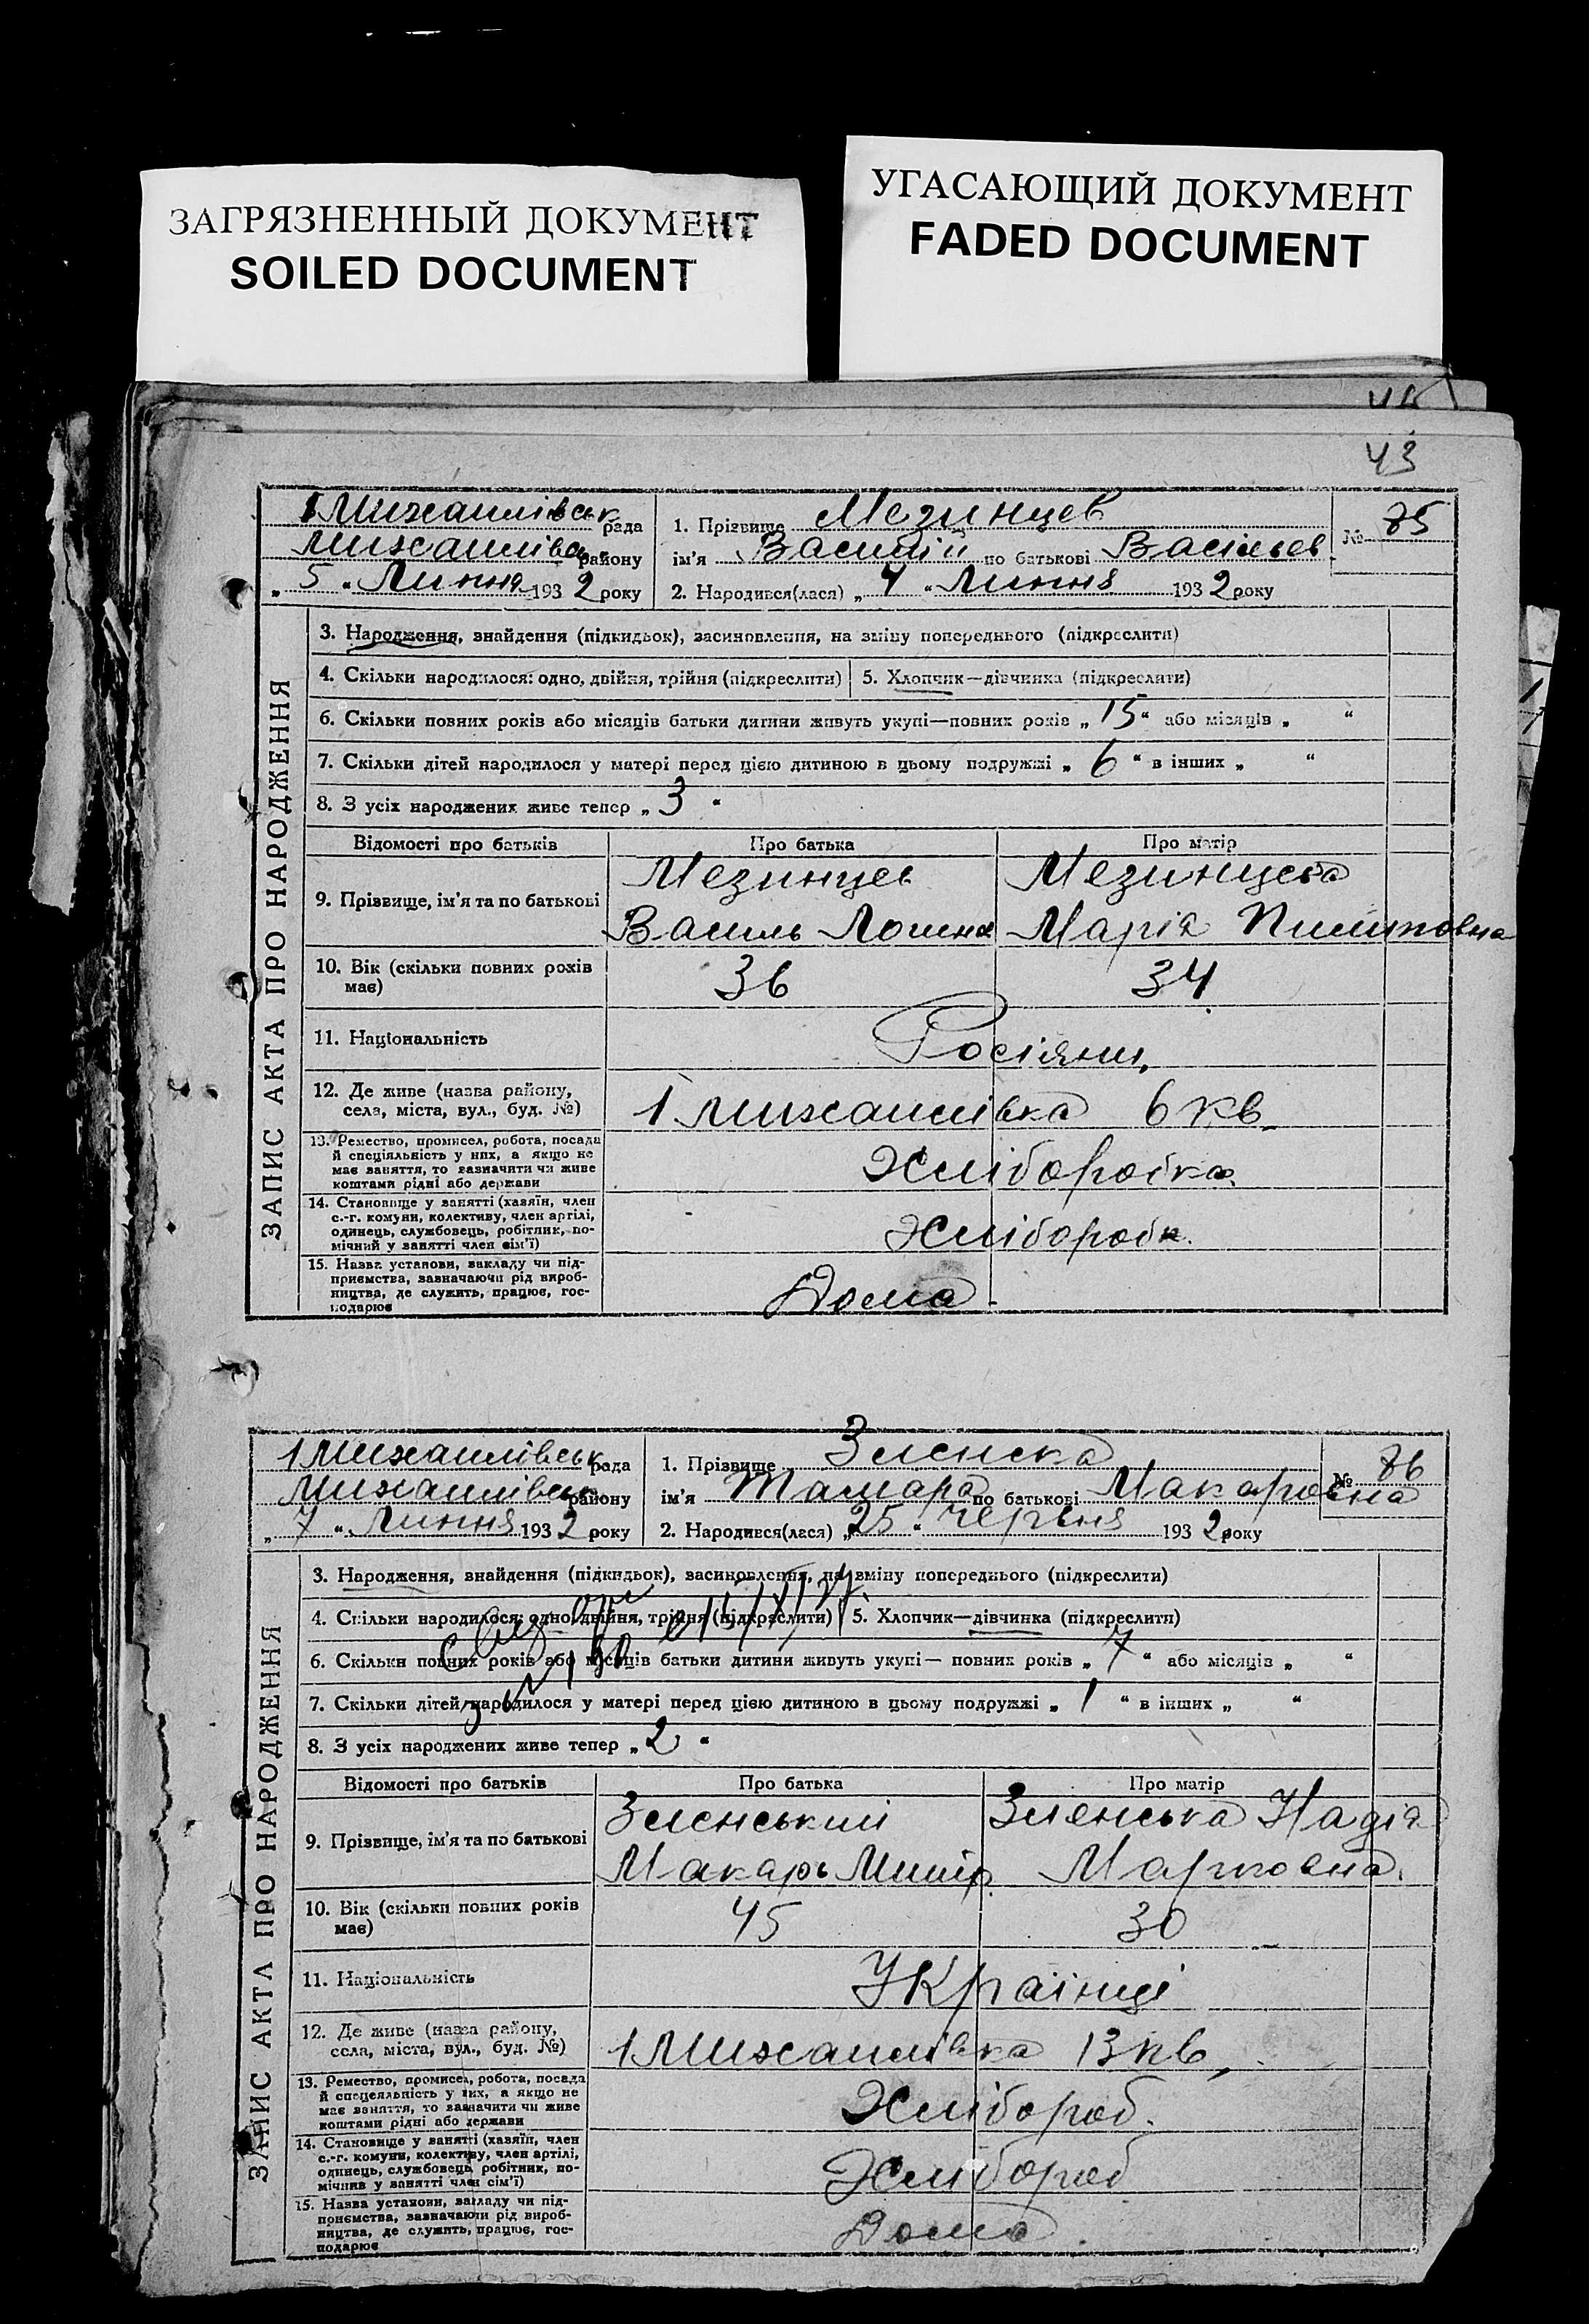 ЗАГРЯЗНЕННЫЙ ДОКУМЕНТ
SOILED DOCUMENT
УГАСАЮЩИЙ ДОКУМЕНТ
FADED DOCUMENT
43
1 Михайлівськ рада
Михайлівськ району
„ 5 “ Липня 1932 року
1. Прізвище Мезинцев
ім'я Василій по батькові Васільев
2. Народився(лася) „ 4 “ Липня 1932 року
№ 85
ЗАПИС АКТА ПРО НАРОДЖЕННЯ
3. Народження, знайдення (підкидьок), засиновлення, на зміну попереднього (підкреслити)
4. Скільки народилося: одно, двійня, трійня (підкреслити) 5. Хлопчик—дівчинка (підкреслити)
6. Скільки повних років або місяців батьки дитини живуть укупі—повних років „ 15 “ або місяців „ “
7. Скільки дітей народилося у матері перед цією дитиною в цьому подружжі „ 6 “ в інших „ “
8. З усіх народжених живе тепер „ 3 “
Відомості про батьків Про батька Про матір
9. Прізвище, ім'я та по батькові
Мезинцев
Василь
Мезинцева
Марія Пилиповна
10. Вік (скільки повних років
має)
36 34
11. Національність Росіяни
12. Де живе (назва району,
села, міста, вул., буд. №)
1 Михайлівка 6 кв
13. Ремество, промисел, робота, посада
й спеціяльність у них, а якщо не
має заняття, то зазначити чи живе
коштами рідні або держави
Хліборобка
14. Становище у занятті (хазяїн, член
с.-г. комуни, колективу, член артілі,
одинець, службовець, робітник, по-
мічний у занятті член сім'ї)
Хлібороби
15. Назва установи, закладу чи під-
приємства, зазначаючи рід вироб-
ництва, де служить, працює, гос-
подарює
Дома
1 Михайлівськ рада
Михайлівськ району
„ 7 “ Липня 1932 року
1. Прізвище Зленска
ім'я Тамара по батькові Макаровна
2. Народився(лася) „ 25 “ червня 1932 року
№ 86
ЗАПИС АКТА ПРО НАРОДЖЕННЯ
3. Народження, знайдення (підкидьок), засиновлення, на зміну попереднього (підкреслити)
4. Скільки народилося: одно, двійня, трійня (підкреслити) 5. Хлопчик—дівчинка (підкреслити)
6. Скільки повних років або місяців батьки дитини живуть укупі— повних років „ 7 “ або місяців „ “
7. Скільки дітей народилося у матері перед цією дитиною в цьому подружжі „ 1 “ в інших „ “
8. З усіх народжених живе тепер „ 2 “
Відомості про батьків Про батька Про матір
9. Прізвище, ім'я та по батькові
Зленський
Макарь
Зленська Надія
Марковна
10. Вік (скільки повних років
має)
45 30
11. Національність Українці
12. Де живе (назва району,
села, міста, вул., буд. №)
1 Михайлівка 13 кв
13. Ремество, промисел, робота, посада
й спецеяльність у них, а якщо не
має заняття, то зазначити чи живе
коштами рідні або держави
Хлібороб.
14. Становище у занятті (хазяїн, член
с.-г. комуни, колективу, член артілі,
одинець, службовець, робітник, по-
мічнив у занятті член сім'ї)
Хлібороб
15. Назва установи, закладу чи під-
приємства, зазначаючи рід вироб-
ництва, де служить, працює, гос-
подарює
Дома